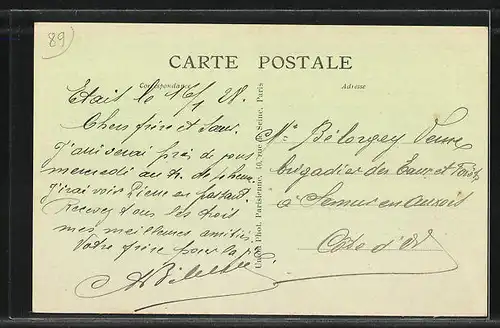 89
CARTE POSTALE
Correspondance
Adresse
Etais le 16/1 28.
Chers frère et Sœur.
J'arriverai près de vous
mercredi au
J'irai voir Pierre en passant.
Recevez tous les trois
mes meilleures amitiés
Votre frère pour la vie
Union Phot. Parisienne, 40, rue de Seine, Paris
Mr Bélorgey
brigadier des Eaux et Forêts
à Semur en Auxois
Côte d'Or